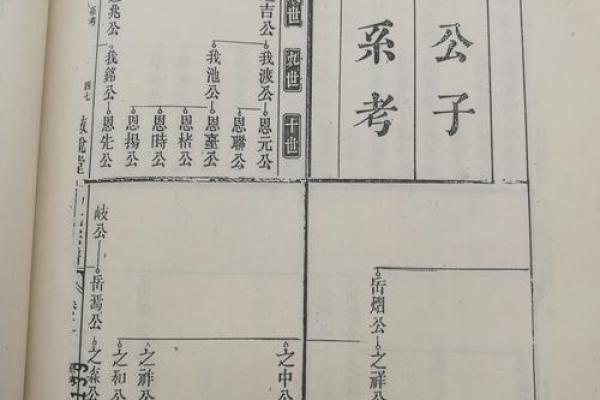 公子
系考
世 九世 十世
吉公 我渡公 恩元公
恩聯公
我池公 恩臺公
恩桔公
恩時公
恩揚公
兆公 我銘公 恩先公
系考 四七
岳熠公 之祥公
之中公
之祚公
之和公
岐公 岳焉公 之森公
139